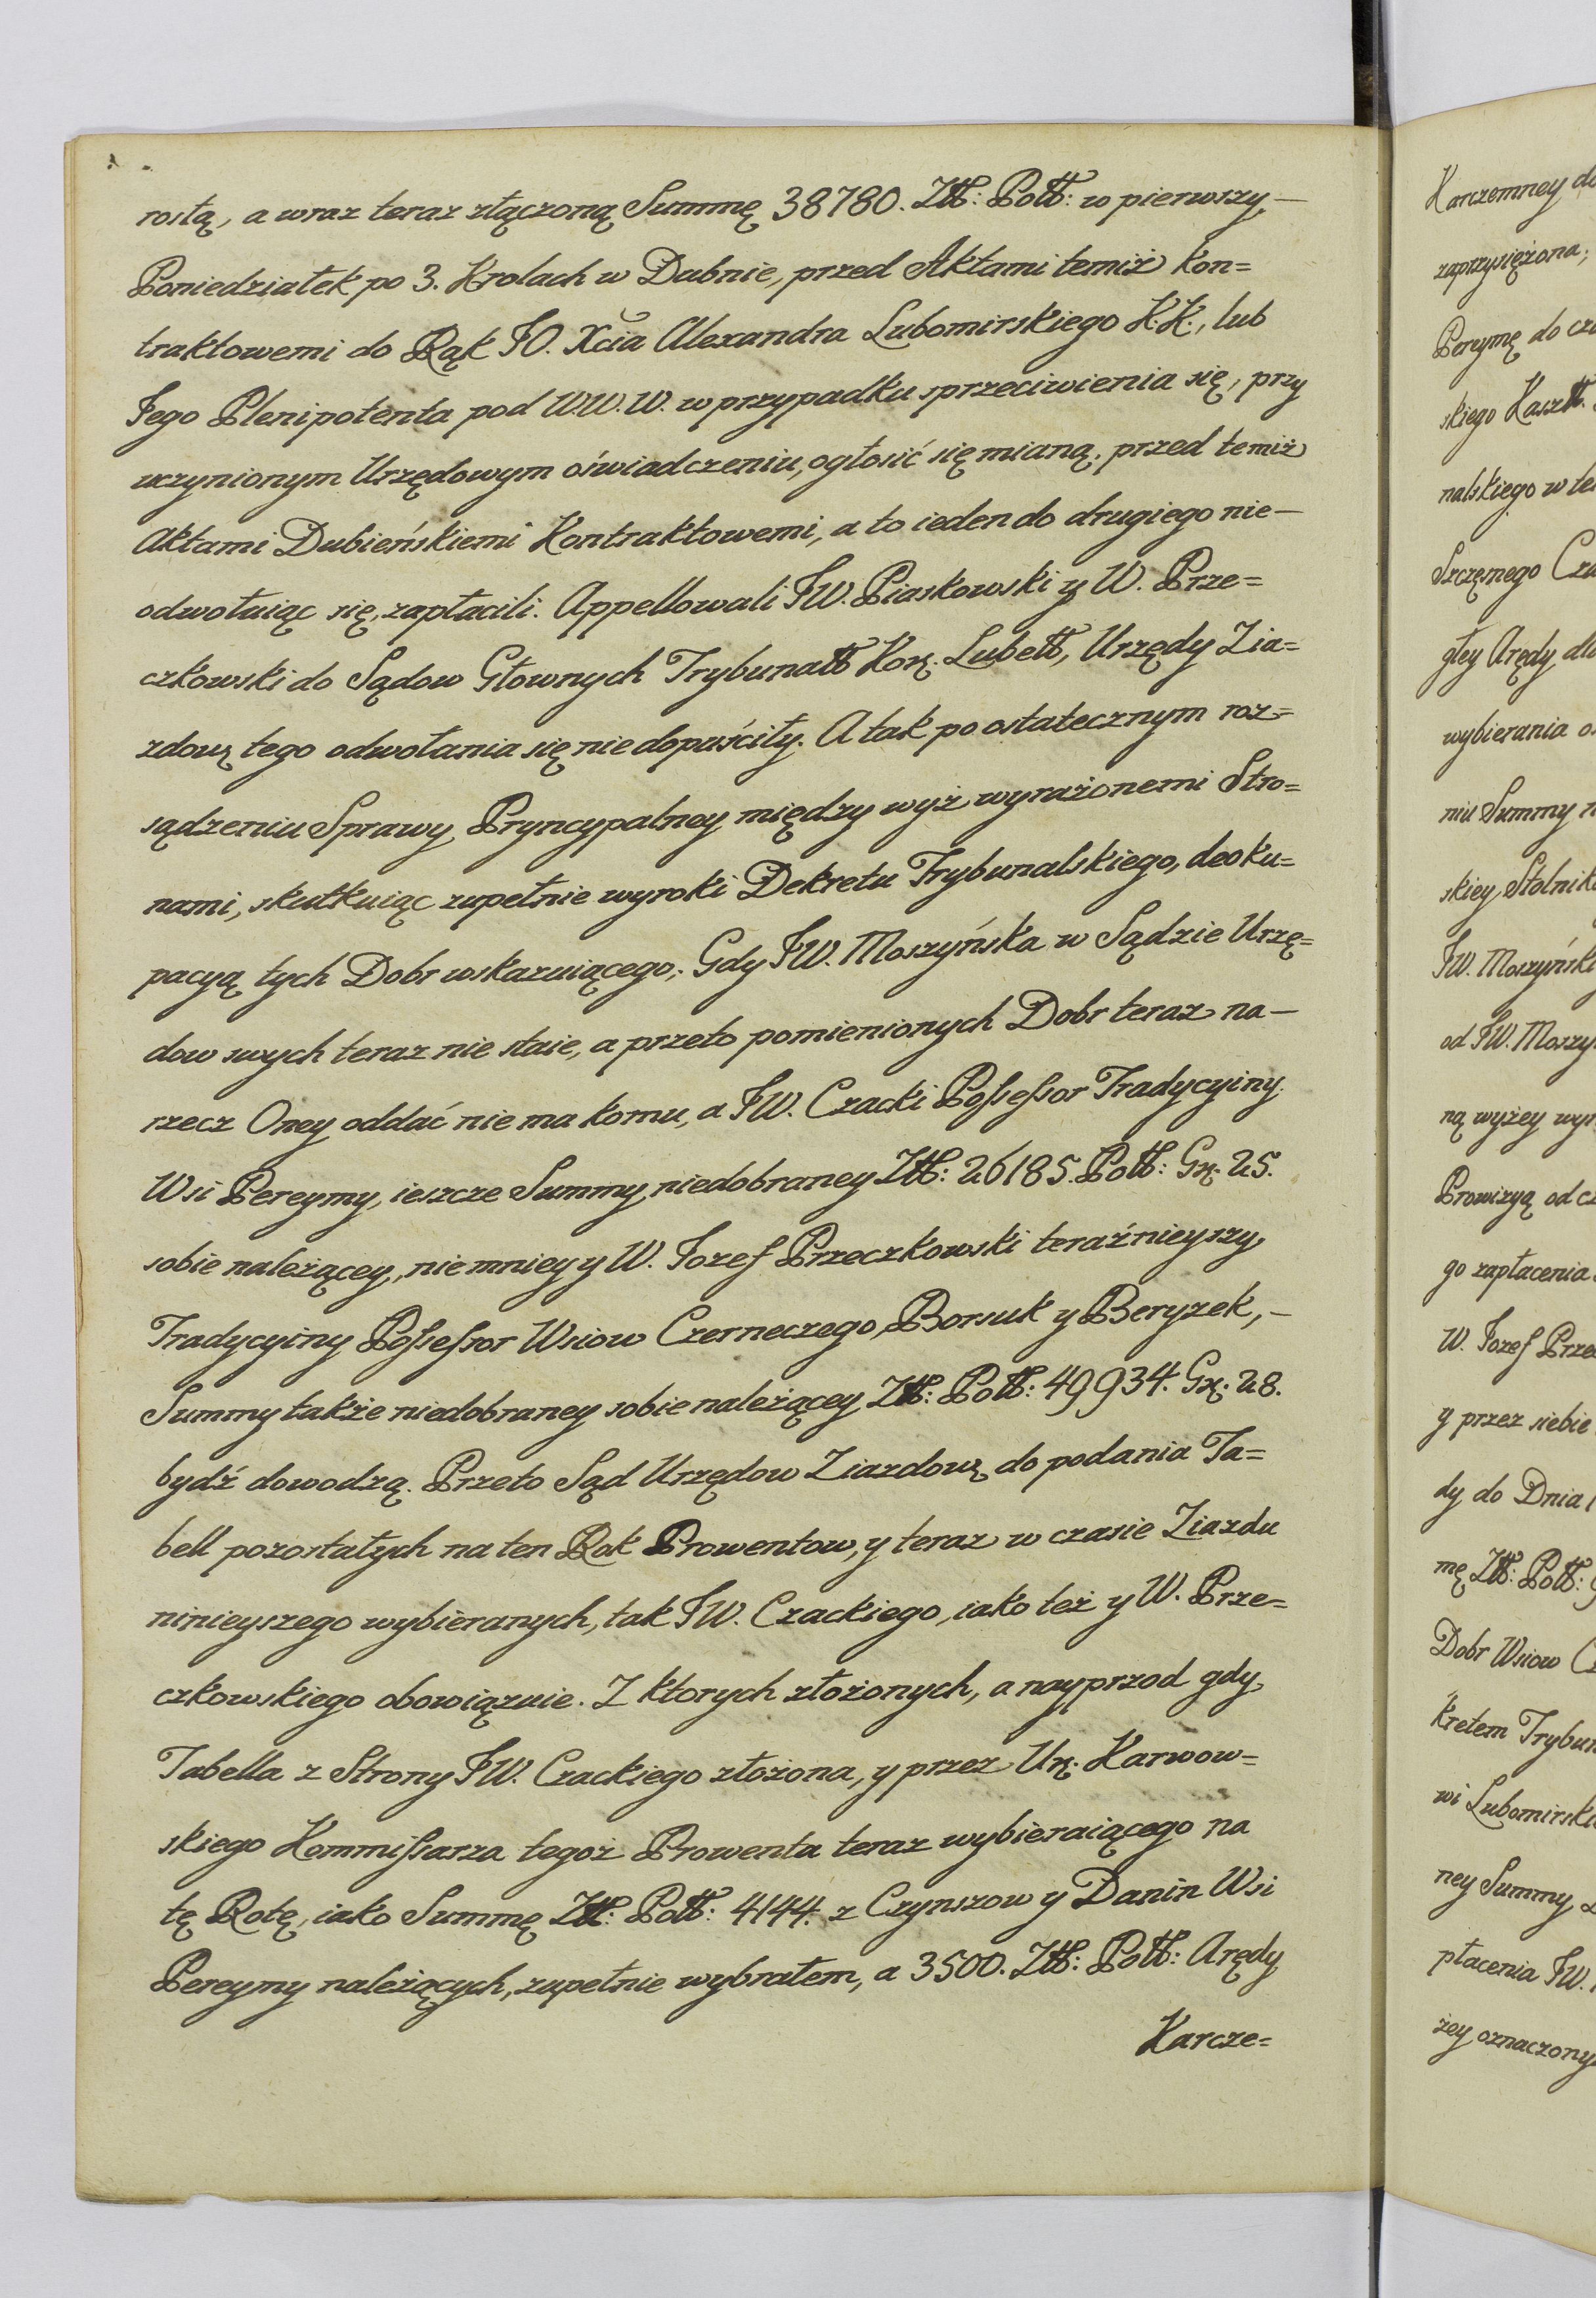 rosłą, a wraz teraz złączoną Summę 38780. Złł: Poll: w pierwszy —
Poniedziałek po 3. Krolach w Dubnie, przed Aktami temiż Kon=
traktowemi do Rąk JO. Xcia Alexandra Lubomirskiego K.K., lub
Jego Plenipotenta pod W.W.W. w przypadku sprzeciwienia się, przy
uczynionym Urzędowym oświadczeniu, ogłosić się mianą. przed temiż
Aktami Dubieńskiemi Kontraktowemi, a to ieden do drugiego nie —
odwołuiąc się, zapłacili. Appellowali JW. Piaskowski y W. Prze=
czkowski do Sądow Głownych Trybunałł Kor. Lubell, Urzędy Zia=
zdowe tego odwołania się nie dopuściły. A tak po ostatecznym roz=
sądzeniu Sprawy Pryncypalney między wyż wyrażonemi Stro=
nami, skutkuiąc zupełnie wyroki Dekretu Trybunalskiego, deoku=
pacyą tych Dobr wskazuiącego; Gdy JW. Moszyńska w Sądzie Urzę=
dow swych teraz nie staie, a przeto pomienionych Dobr teraz na —
rzecz Oney oddać nie ma komu, a JW. Czacki Possessor Tradycyiny
Wsi Pereymy, ieszcze Summy niedobraney Złł: 26185. Poll: Gr. 25.
sobie należącey, nie mniey y W. Jozef Przeczkowski teraźnieyszy
Tradycyiny Possessor Wsiow Czerneczego, Borsuk y Beryzek, —
Summy także niedobraney sobie należącey Złł: Poll: 49934. Gr. 28.
bydź dowodzą. Przeto Sąd Urzędow Ziazdow do podania Ta=
bell pozostałych na ten Rok Prowentow, y teraz w czasie Ziazdu
ninieyszego wybieranych, tak JW. Czackiego, iako też y W. Prze=
czkowskiego obowiązuie. Z ktorych złożonych, a nayprzod gdy
Tabella z Strony JW. Czackiego złożona, y przez Ur. Karwow=
skiego Kommissarza tegoż Prowentu teraz wybieraiącego na
tę Rotę, iako Summę Złł: Poll: 4144. z Czynszow y Danin Wsi
Pereymy należących, zupełnie wybrałem, a 3500. Złł: Poll: Arędy
Karcze=
Karczemney do
zaprzysiężona;
Pereymę do
skiego Kasztt.
nalskiego w
Szczęsnego
głey Arędy
wybierania
niu Summy
skiey Stolnik
JW. Moszyński
od JW. Moszy
ną wyżey wyr
Prowizyą od
go zapłacenia
W. Jozef Prze
y przez siebie
dy do Dnia
mę Złł: Poll:
Dobr Wsiow
kretem Trybun
wi Lubomirski
ney Summy
płacenia JW.
żey oznaczony